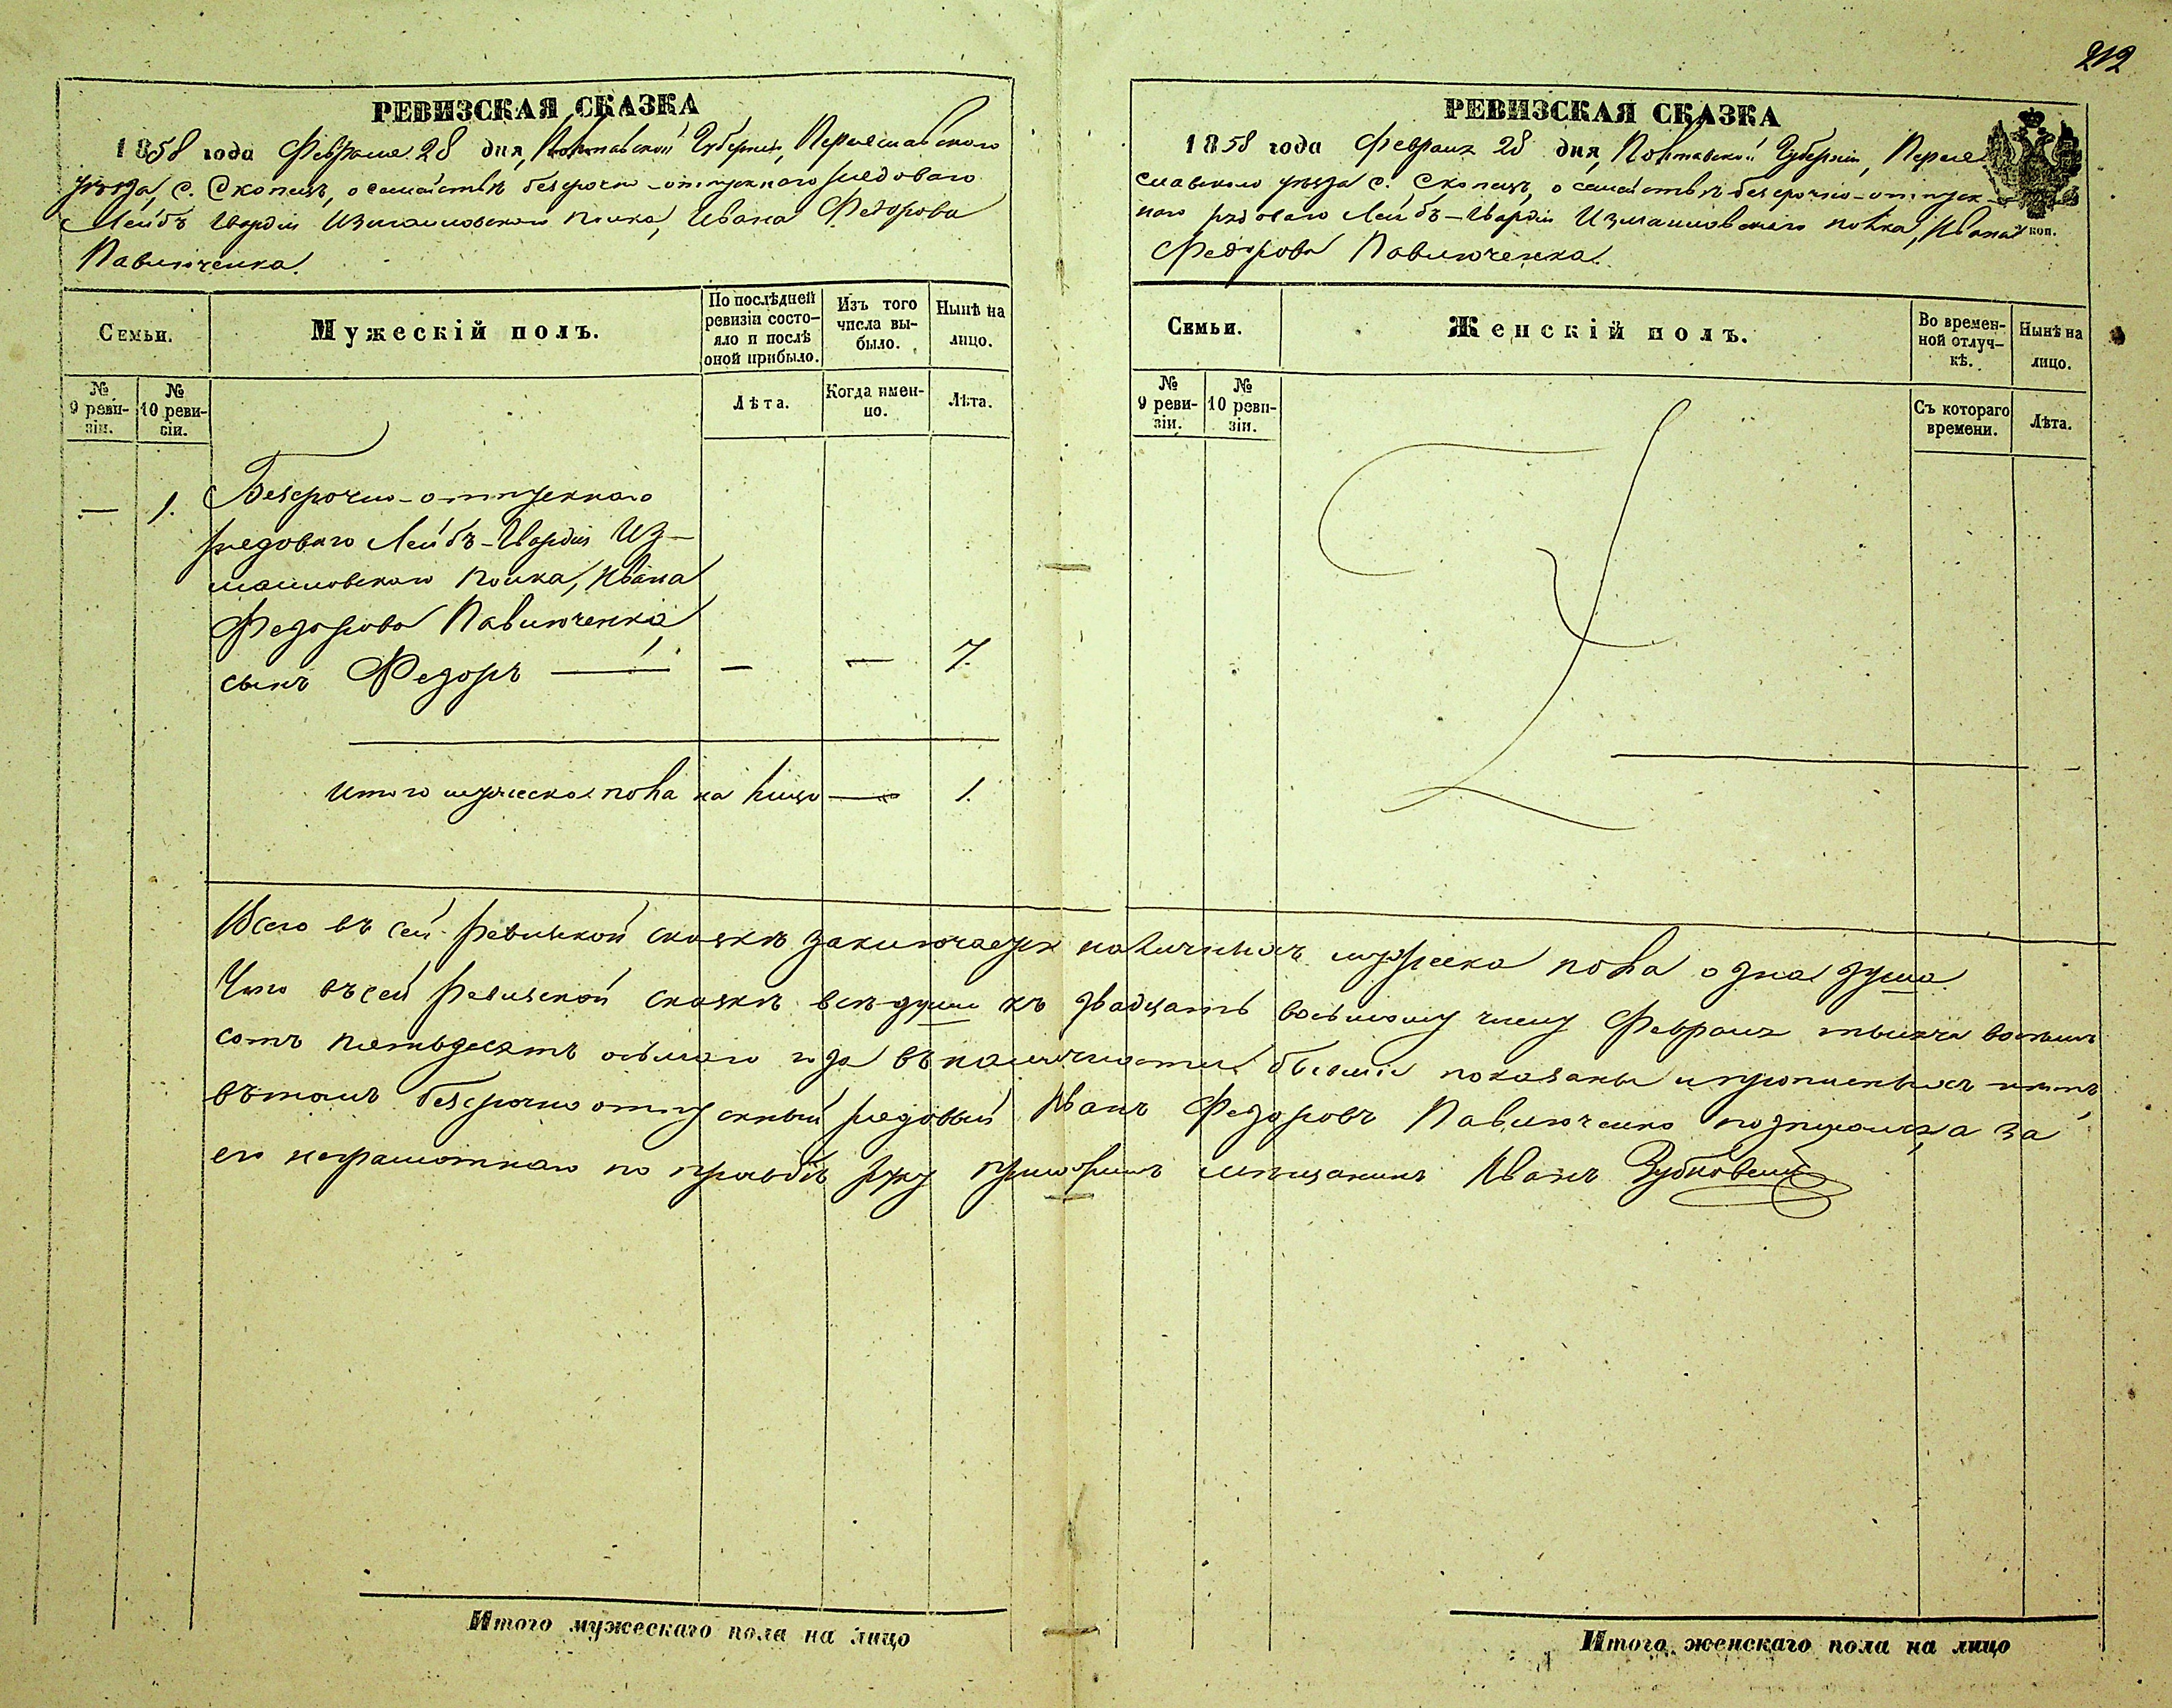 212
РЕВИЗСКАЯ СКАЗКА
1858 года Февраля 28 дня, Полтавской Губернiи, Переяславского
уѣзда, с. Скопецъ, о семействѣ безсрочно-отпускнаго рядоваго
Лейбъ Гвардiи Измайловскаго полка, Ивана Федорова
Павлюченка.
Семьи.
Мужескiй полъ.
По послѣдней
ревизiи состо-
яло и послѣ
оной прибыло.
Изъ того
числа вы-
было.
Нынѣ на
лицо.
№
9 реви-
зiи.
№
10 реви-
сiи.
Лѣта.
Когда имен-
но.
Лѣта.
— 1. Безсрочно-отпускнаго
рядоваго Лейбъ-Гвардiи Из-
майловскаго полка, Ивана
Федорова Павлюченка,
сынъ Федоръ — — — 7.
Итого мужеска пола на лицо — 1.
РЕВИЗСКАЯ СКАЗКА
1858 года Февраля 28 дня, Полтавской Губернiи, Перея
славскаго уѣзда с. Скопецъ, о семействѣ безсрочно-отпуск-
наго рядоваго Лейбъ-Гвардiи Измайловскаго полка, Ивана
коп.
Федорова Павлюченка.
Семьи.
Женскiй полъ.
Во времен-
ной отлуч-
кѣ.
Нынѣ на
лицо.
№
9 реви-
зiи.
№
10 реви-
зiи.
Съ котораго
времени.
Лѣта.
Всего въ сей ревизской сказкѣ заключается наличныхъ мужеска пола одна душа
Что въ сей ревизской сказкѣ всѣ души къ двадцать восьмому числу Февраля тысяча восемь
сотъ пятьдесятъ осьмаго года въ наличности бывшiе показаны и прописныхъ нѣтъ,
въ томъ безсрочно отпускный рядовый Иванъ Федоровъ Павлюченко подписался, а за
его неграмотнаго по прозьбѣ руку приложилъ мѣщанинъ Иванъ
Итого мужескаго пола на лицо
Итого женскаго пола на лицо